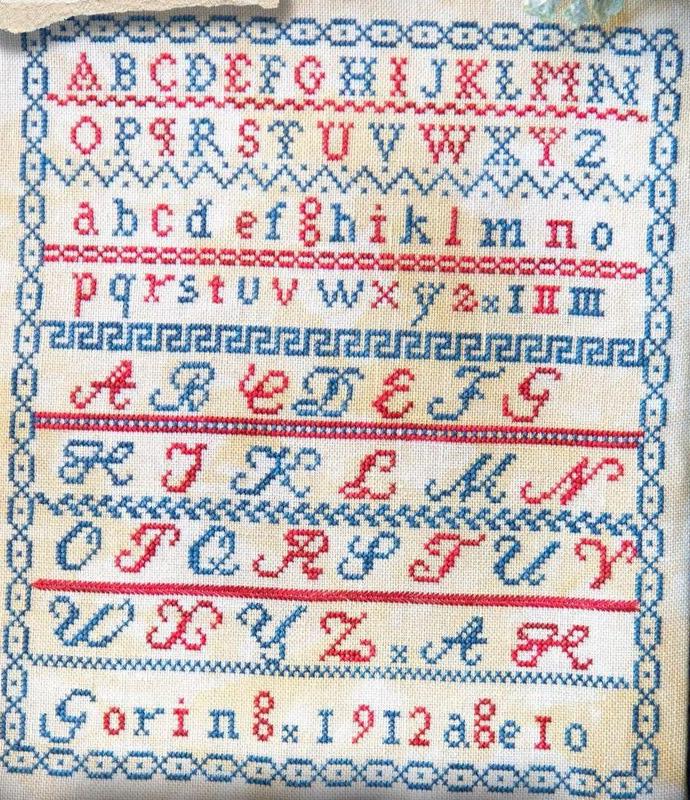 A B C D E F G H I J K L M N
O P Q R S T U V W X Y Z
a b c d e f g h i k l m n o
p q r s t u v w x y z x I II III
A B C D E F G
H I K L M N
O P Q R S T U V
W X Y Z x A H
Goring x 1912 age 10